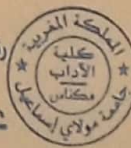 المملكة المغربية
كلية
الآداب
مكناس
جامعة مولاي إسماعيل